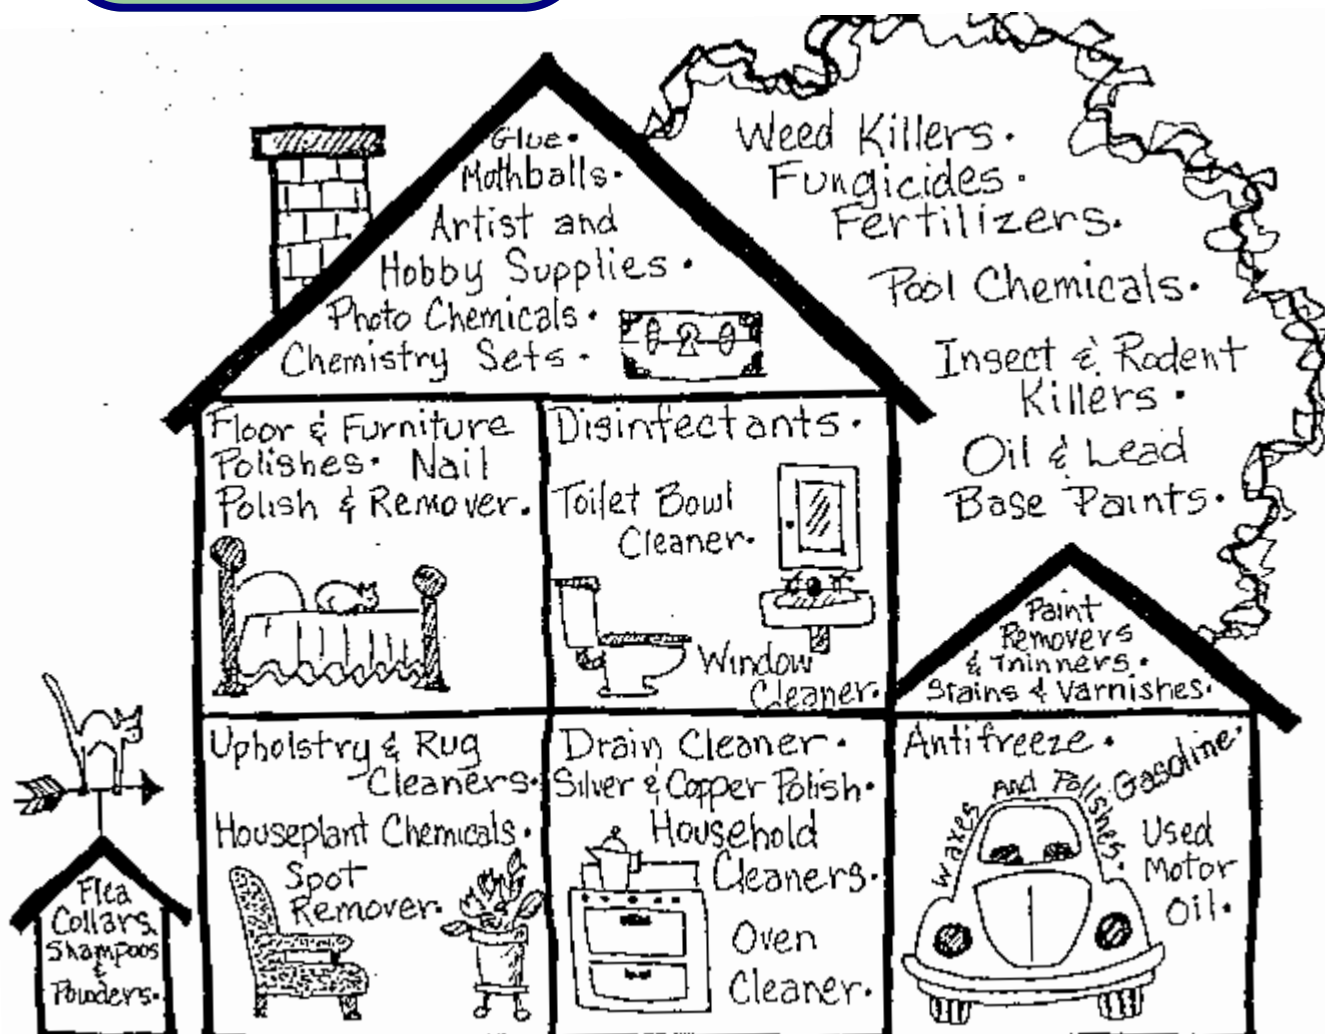 Glue.
Mothballs.
Artist and
Hobby Supplies.
Photo Chemicals.
Chemistry Sets.
Weed Killers.
Fungicides.
Fertilizers.
Pool Chemicals.
Insect & Rodent
Killers.
Oil & Lead
Base Paints.
Floor & Furniture
Polishes. Nail
Polish & Remover.
Disinfectants.
Toilet Bowl
Cleaner.
Window
Cleaner.
Paint
Removers
& Thinners.
Stains & Varnishes.
Upholstry & Rug
Cleaners.
Houseplant Chemicals.
Spot
Remover.
Drain Cleaner.
Silver & Copper Polish.
Household
Cleaners.
Oven
Cleaner.
Antifreeze.
Waxes And Polishes.
Gasoline.
Used
Motor
Oil.
Flea
Collars
Shampoos
&
Powders.